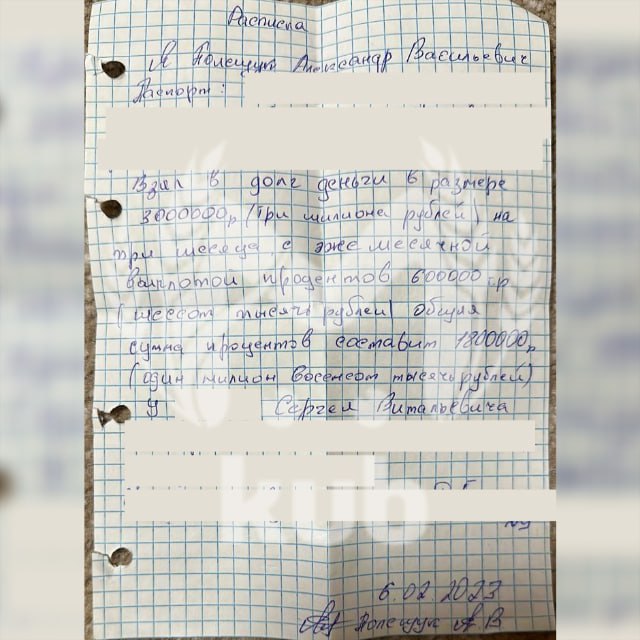 Расписка
Я Полещук Александр Васильевич
Паспорт:
Взял в долг деньги в размере
3000000р (три милиона рублей) на
три месяца, с эжемесячной
выплотой процентов 600000 р
(шессот тысячь рублей) общия
сумма процентов составит 1800000р
(один милион восемсот тысячь рублей)
У Сергея Витальевича
kub
6.02 2023
Полещук А.В